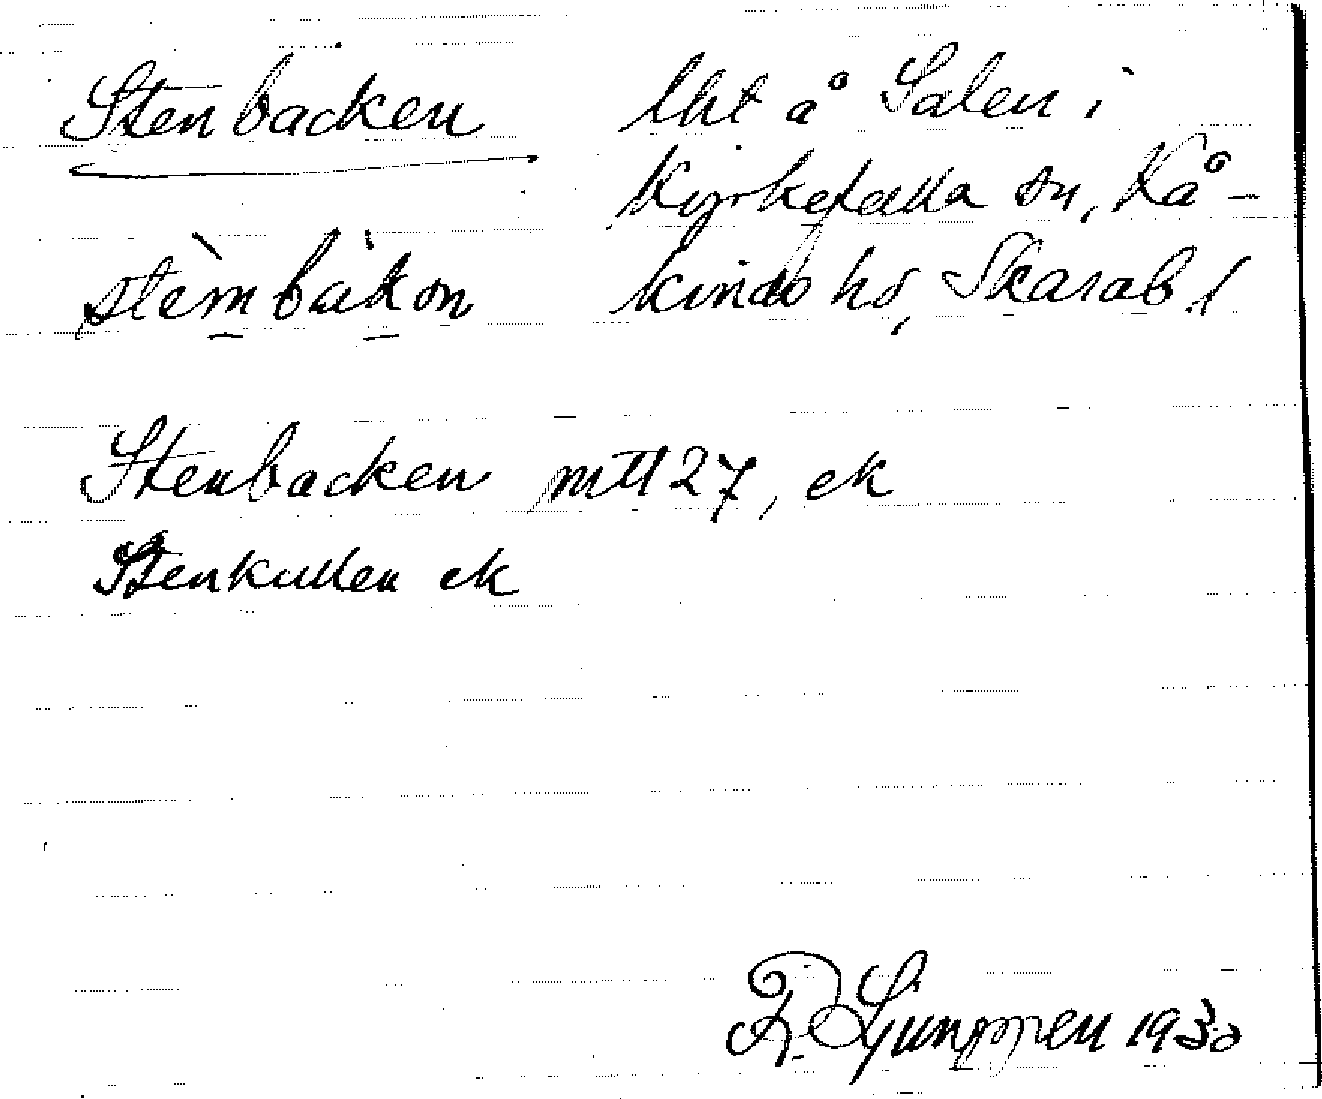 Stenbacken lht å Salen i
Kyrkefalla sn, Kå-
stèmbàkɷn kinds hd, Skarab. l
Stenbacken mtl 27, ek
Stenkullen ek
R. Ljunggren 1930